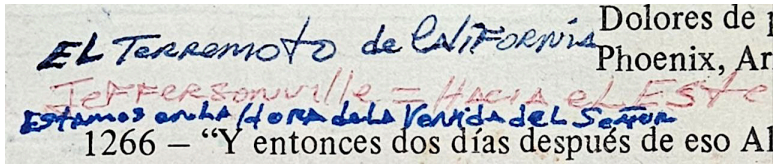 Dolores de
EL Terremoto de CALIFORNIA
Phoenix,
Jeffersonville = HACIA eL ESte
Estamos en LA HORA de LA Venida deL Señor
1266 – “Y entonces dos días después de eso